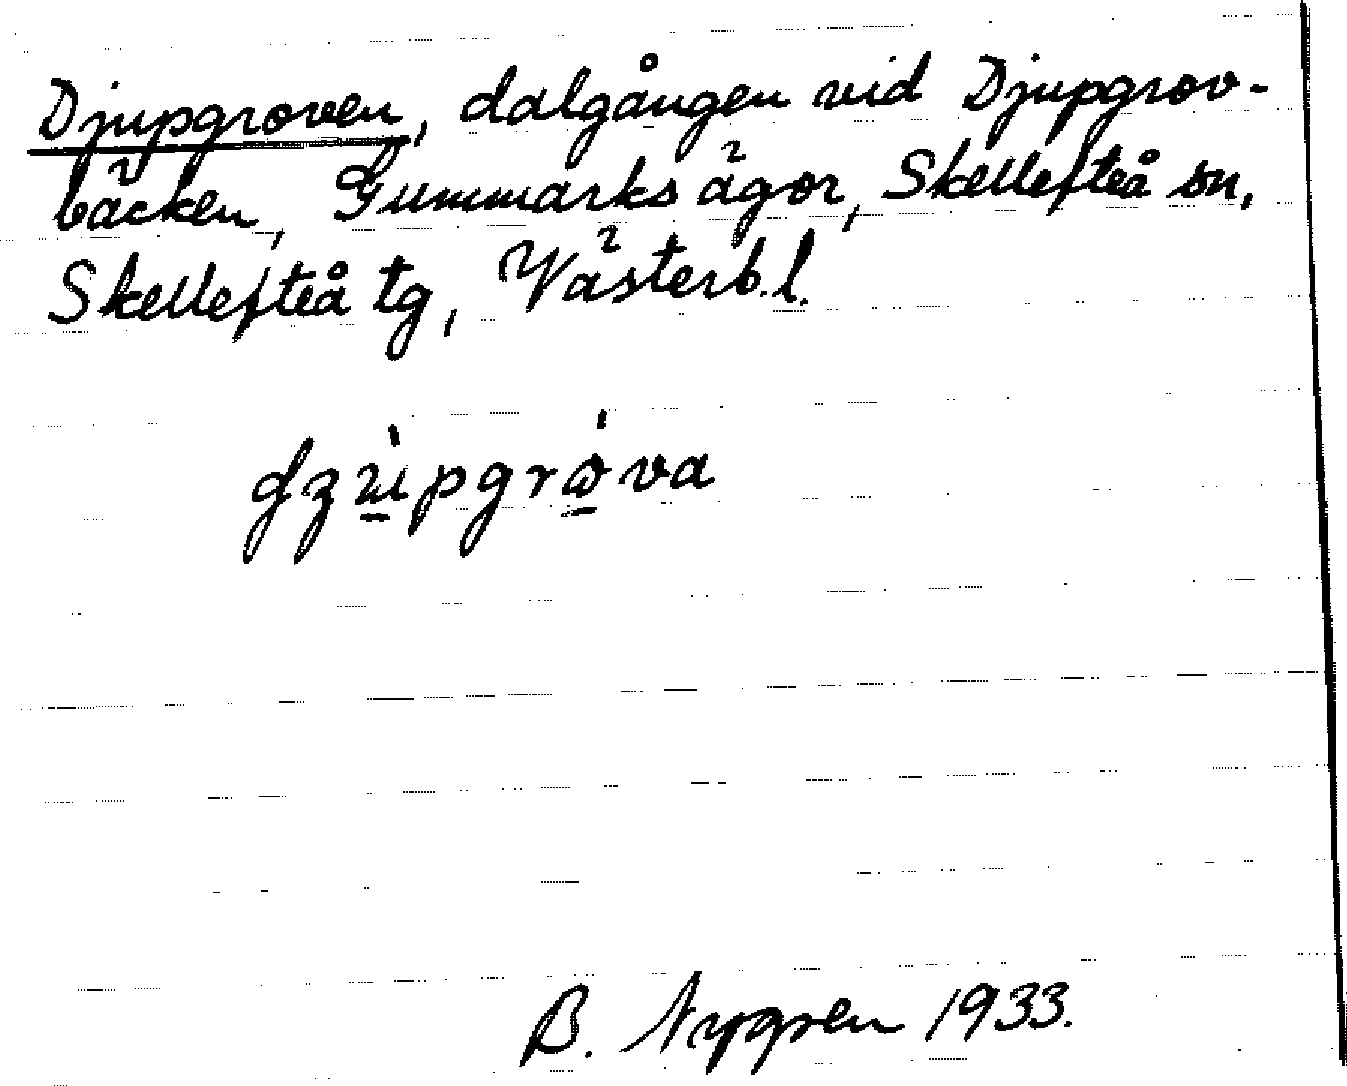 Djupgroven, dalgången vid Djupgrov-
bäcken, Gummarks ägor, Skellefteå sn,
Skellefteå tg, Västerb.l.
B. Nygren 1933.